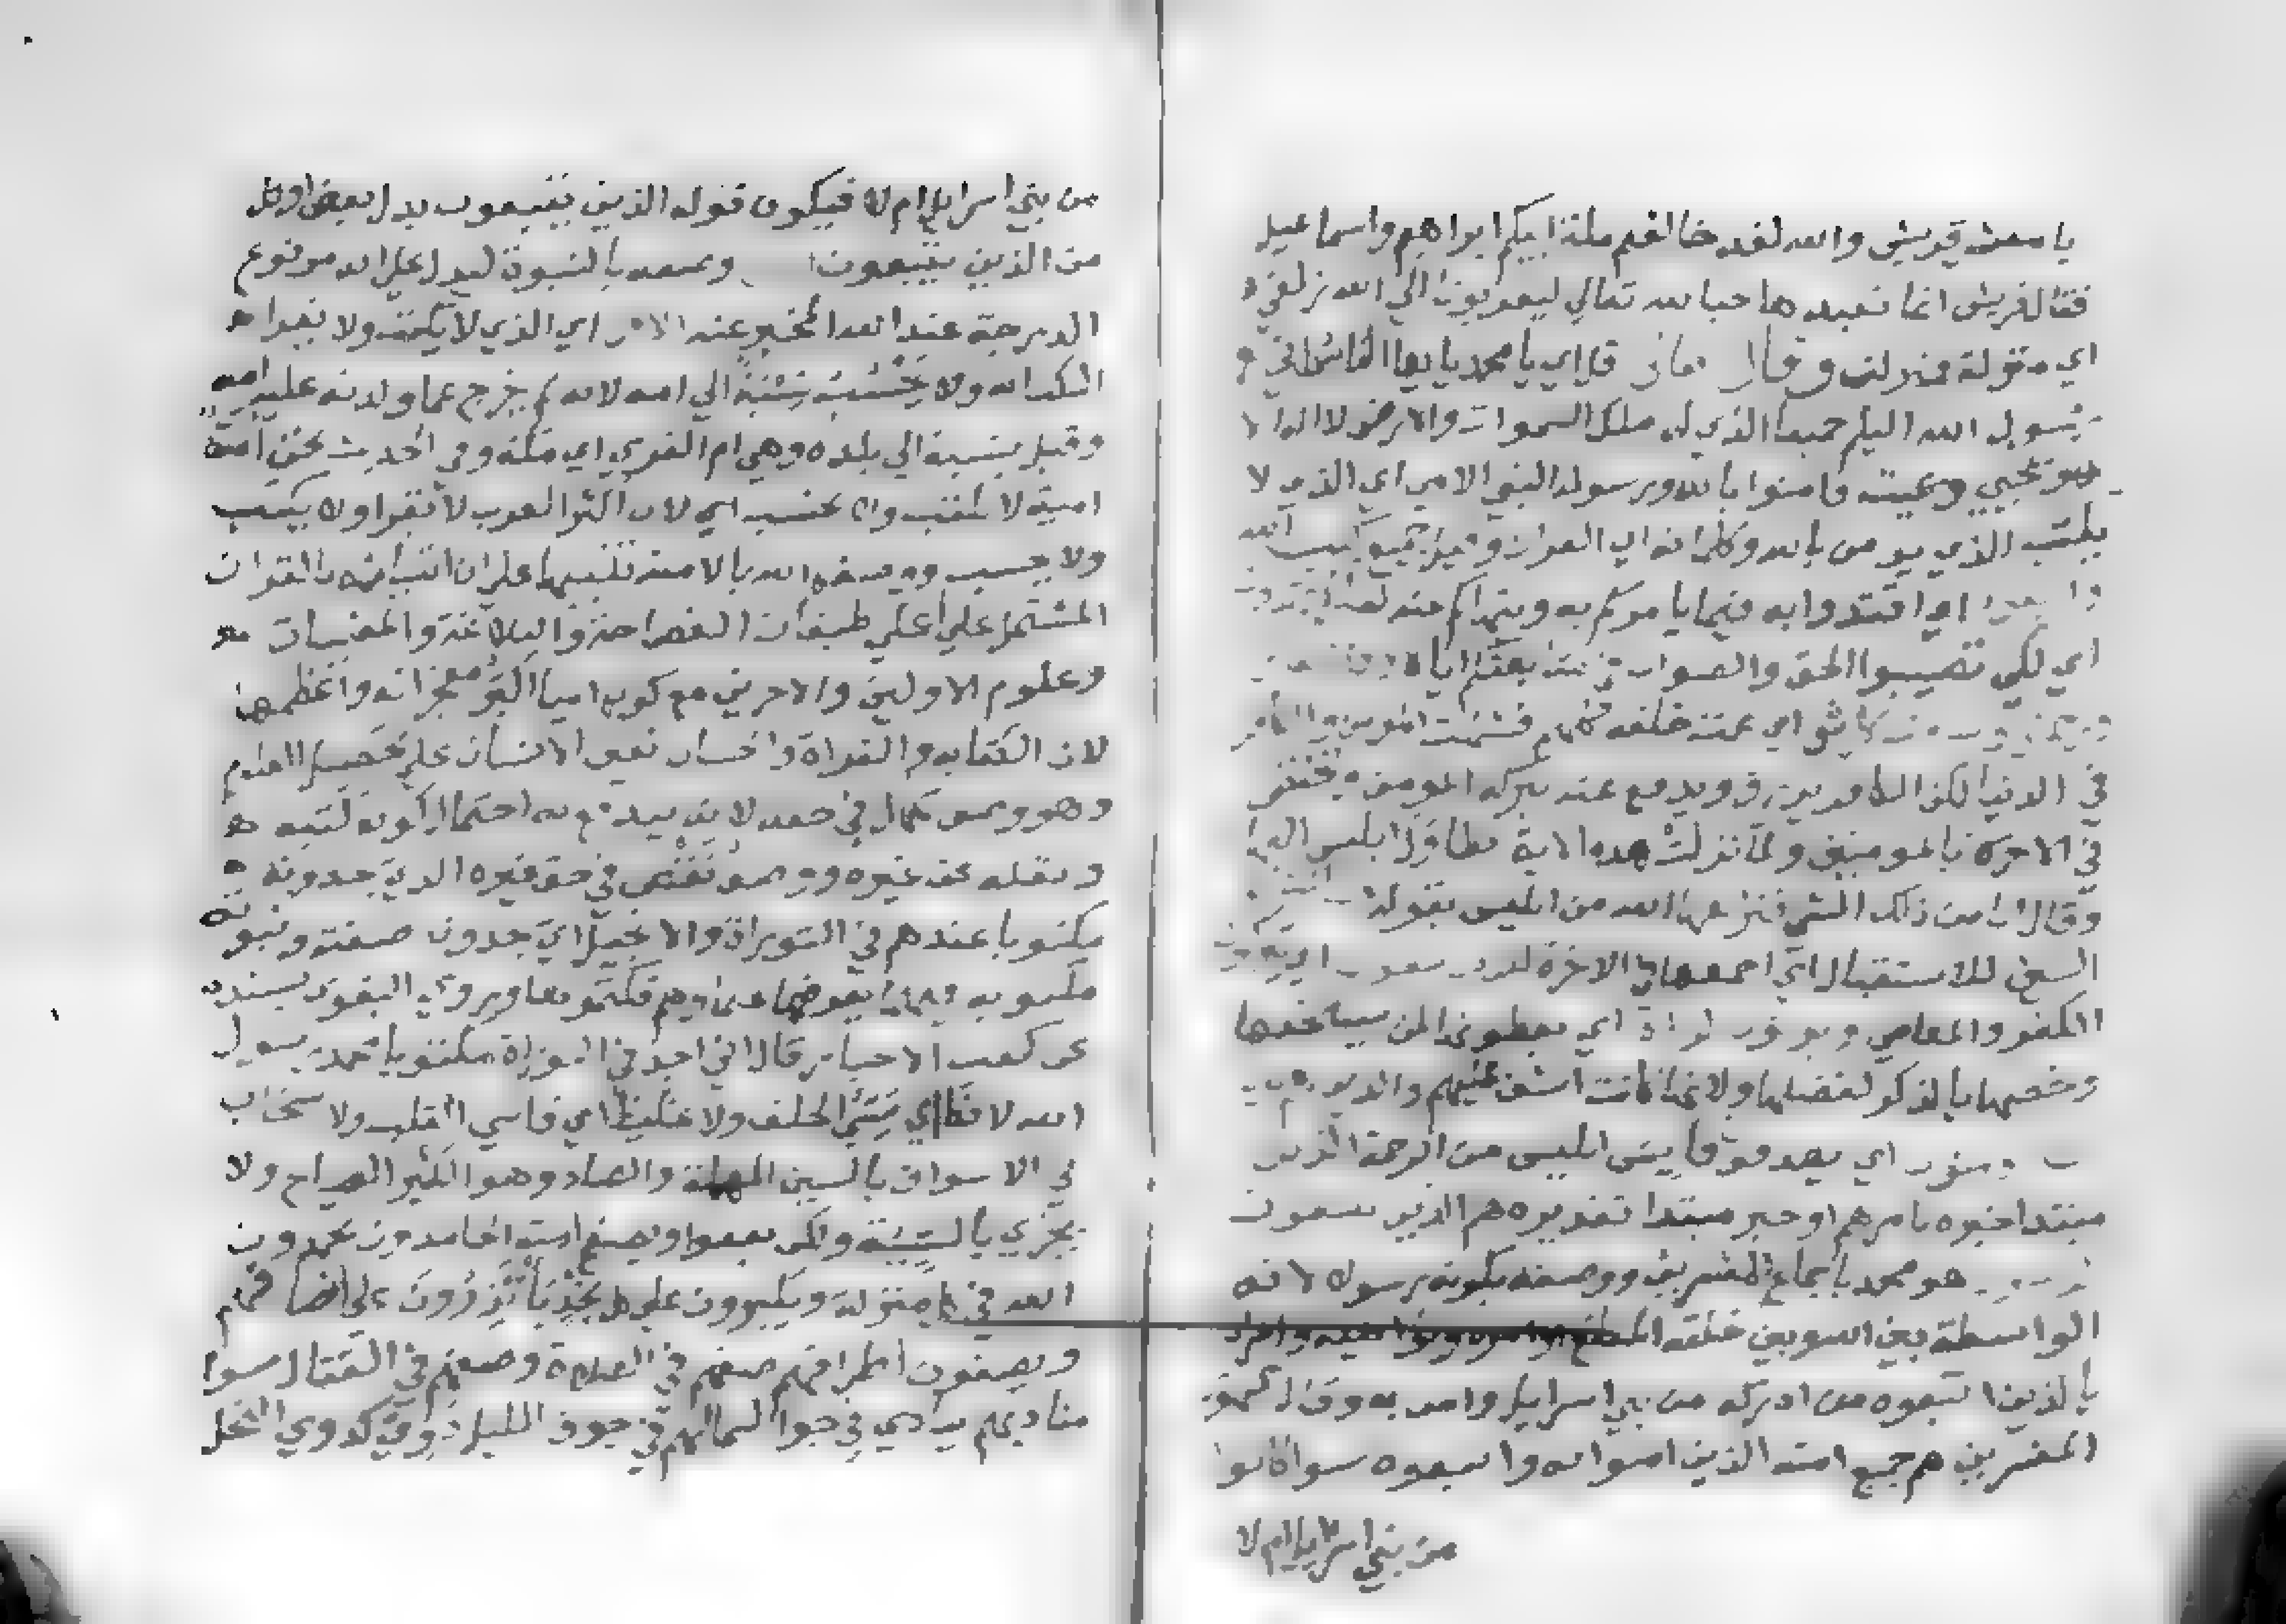 يا معشر قريش والله لقد خالفتم ملة ابيكم ابراهيم واسماعيل
فقال قريش انما نعبدها حبا لله تعالي ليقربونا الي الله زلفي
اي منزلة وقال تعالي قل اي يا محمد يا ايها الناس اني
رسول الله اليكم جميعا الذي له ملك السموات والارض لا اله الا
هو يحيي ويميت فامنوا بالله ورسوله النبي الامي اي الذي لا
يكتب الذي يومن بالله وكلماته اي القران وجميع كتب الله
واتبعوه اي اقتدوا به فيما يامركم به وينهاكم عنه لعلكم تهتدون
اي لكي تصيبوا الحق والصواب في متابعتكم اياه
كل شي اي عمت خلقه كلهم فشملت المومن والكافر
في الدنيا لكن الكافر يرزق ويدفع عنه ببركة المومن وتختص
في الاخرة بالمومنين ولما نزلت هذه الاية تطاول ابليس اليها
وقال انا من ذلك الشي فنزعها الله من ابليس بقوله
السين للاستقبال اي اجعلها في الاخرة للذين يتقون اي يتقون
الكفر والمعاصي ويوتون الزكاة اي يعطونها لمن يستحقها
وخصها بالذكر لفضلها ولانها كانت اشق عليهم والذين هم
يومنون اي يصدقون فايس ابليس من الرحمة الذين
مبتدا خبره يامرهم او خبر مبتدا تقديره هم الذين يتبعون
هو محمد باجماع المفسرين ووصفه بكونه رسولا لانه
الواسطة بين الله وبين خلقه المبلغ اوامره ونواهيه والمراد
بالذين اتبعوه من ادركه من بني اسرايل وامن به وقال جمهور
المفسرين هم جميع امته الذين امنوا به واتبعوه سوا كانوا
من بني اسرايل ام لا
من بني اسرايل ام لا فيكون قوله الذين يتبعون بدل بعض او كل
من الذين يتبعون وصفه بالنبوة ليدل علي انه مرفوع
الدرجة عند الله المخبر عنه الامي اي الذي لا يكتب ولا يقرا
الي امه لانه لم يخرج عما ولدته عليه امه
وقيل نسبة الي بلده وهي ام القري اي مكة وفي الحديث نحن امة
امية لا نكتب ولا نحسب اي لان اكثر العرب لا تقرا ولا يكتب
ولا يحسب وصفه الله بالامية تنبيها علي ان اتيانه بالقران
المشتمل علي اعلي طبقات الفصاحة والبلاغة والمغيبات
وعلوم الاولين والاخرين مع كونه اميا اكبر معجزاته واعظمها
لان الكتابة والقراة والحساب تعين الانسان علي تحصيل العلوم
وهو وصف كمال في حقه لانه يندفع به احتمال كونه كتبه
ونقله عن غيره ووصف نقص في حق غيره الذي يجدونه
مكتوبا عندهم في التوراة والانجيل اي يجدون صفته ونبوته
مكتوبة يعرفها علماوهم فكتموها وروي البغوي بسنده
عن كعب الاحبار قال اني اجد في التوراة مكتوبا محمد رسول
الله لا فظ اي سيئ الخلق ولا غليظ اي قاسي القلب ولا سخاب
في الاسواق بالسين المهملة والصاد وهو الكثير الصياح ولا
يجزي بالسيئة ولكن يعفوا ويصفح امته الحامدون يحمدون
الله في كل منزلة ويكبرون علي كل نجد ياتزرون علي انصافهم
ويصفون اطرافهم صفهم في الصلاة وصفهم في القتال سوا
مناديهم ينادي في جو السما لهم في جوف الليل دوي كدوي النحل